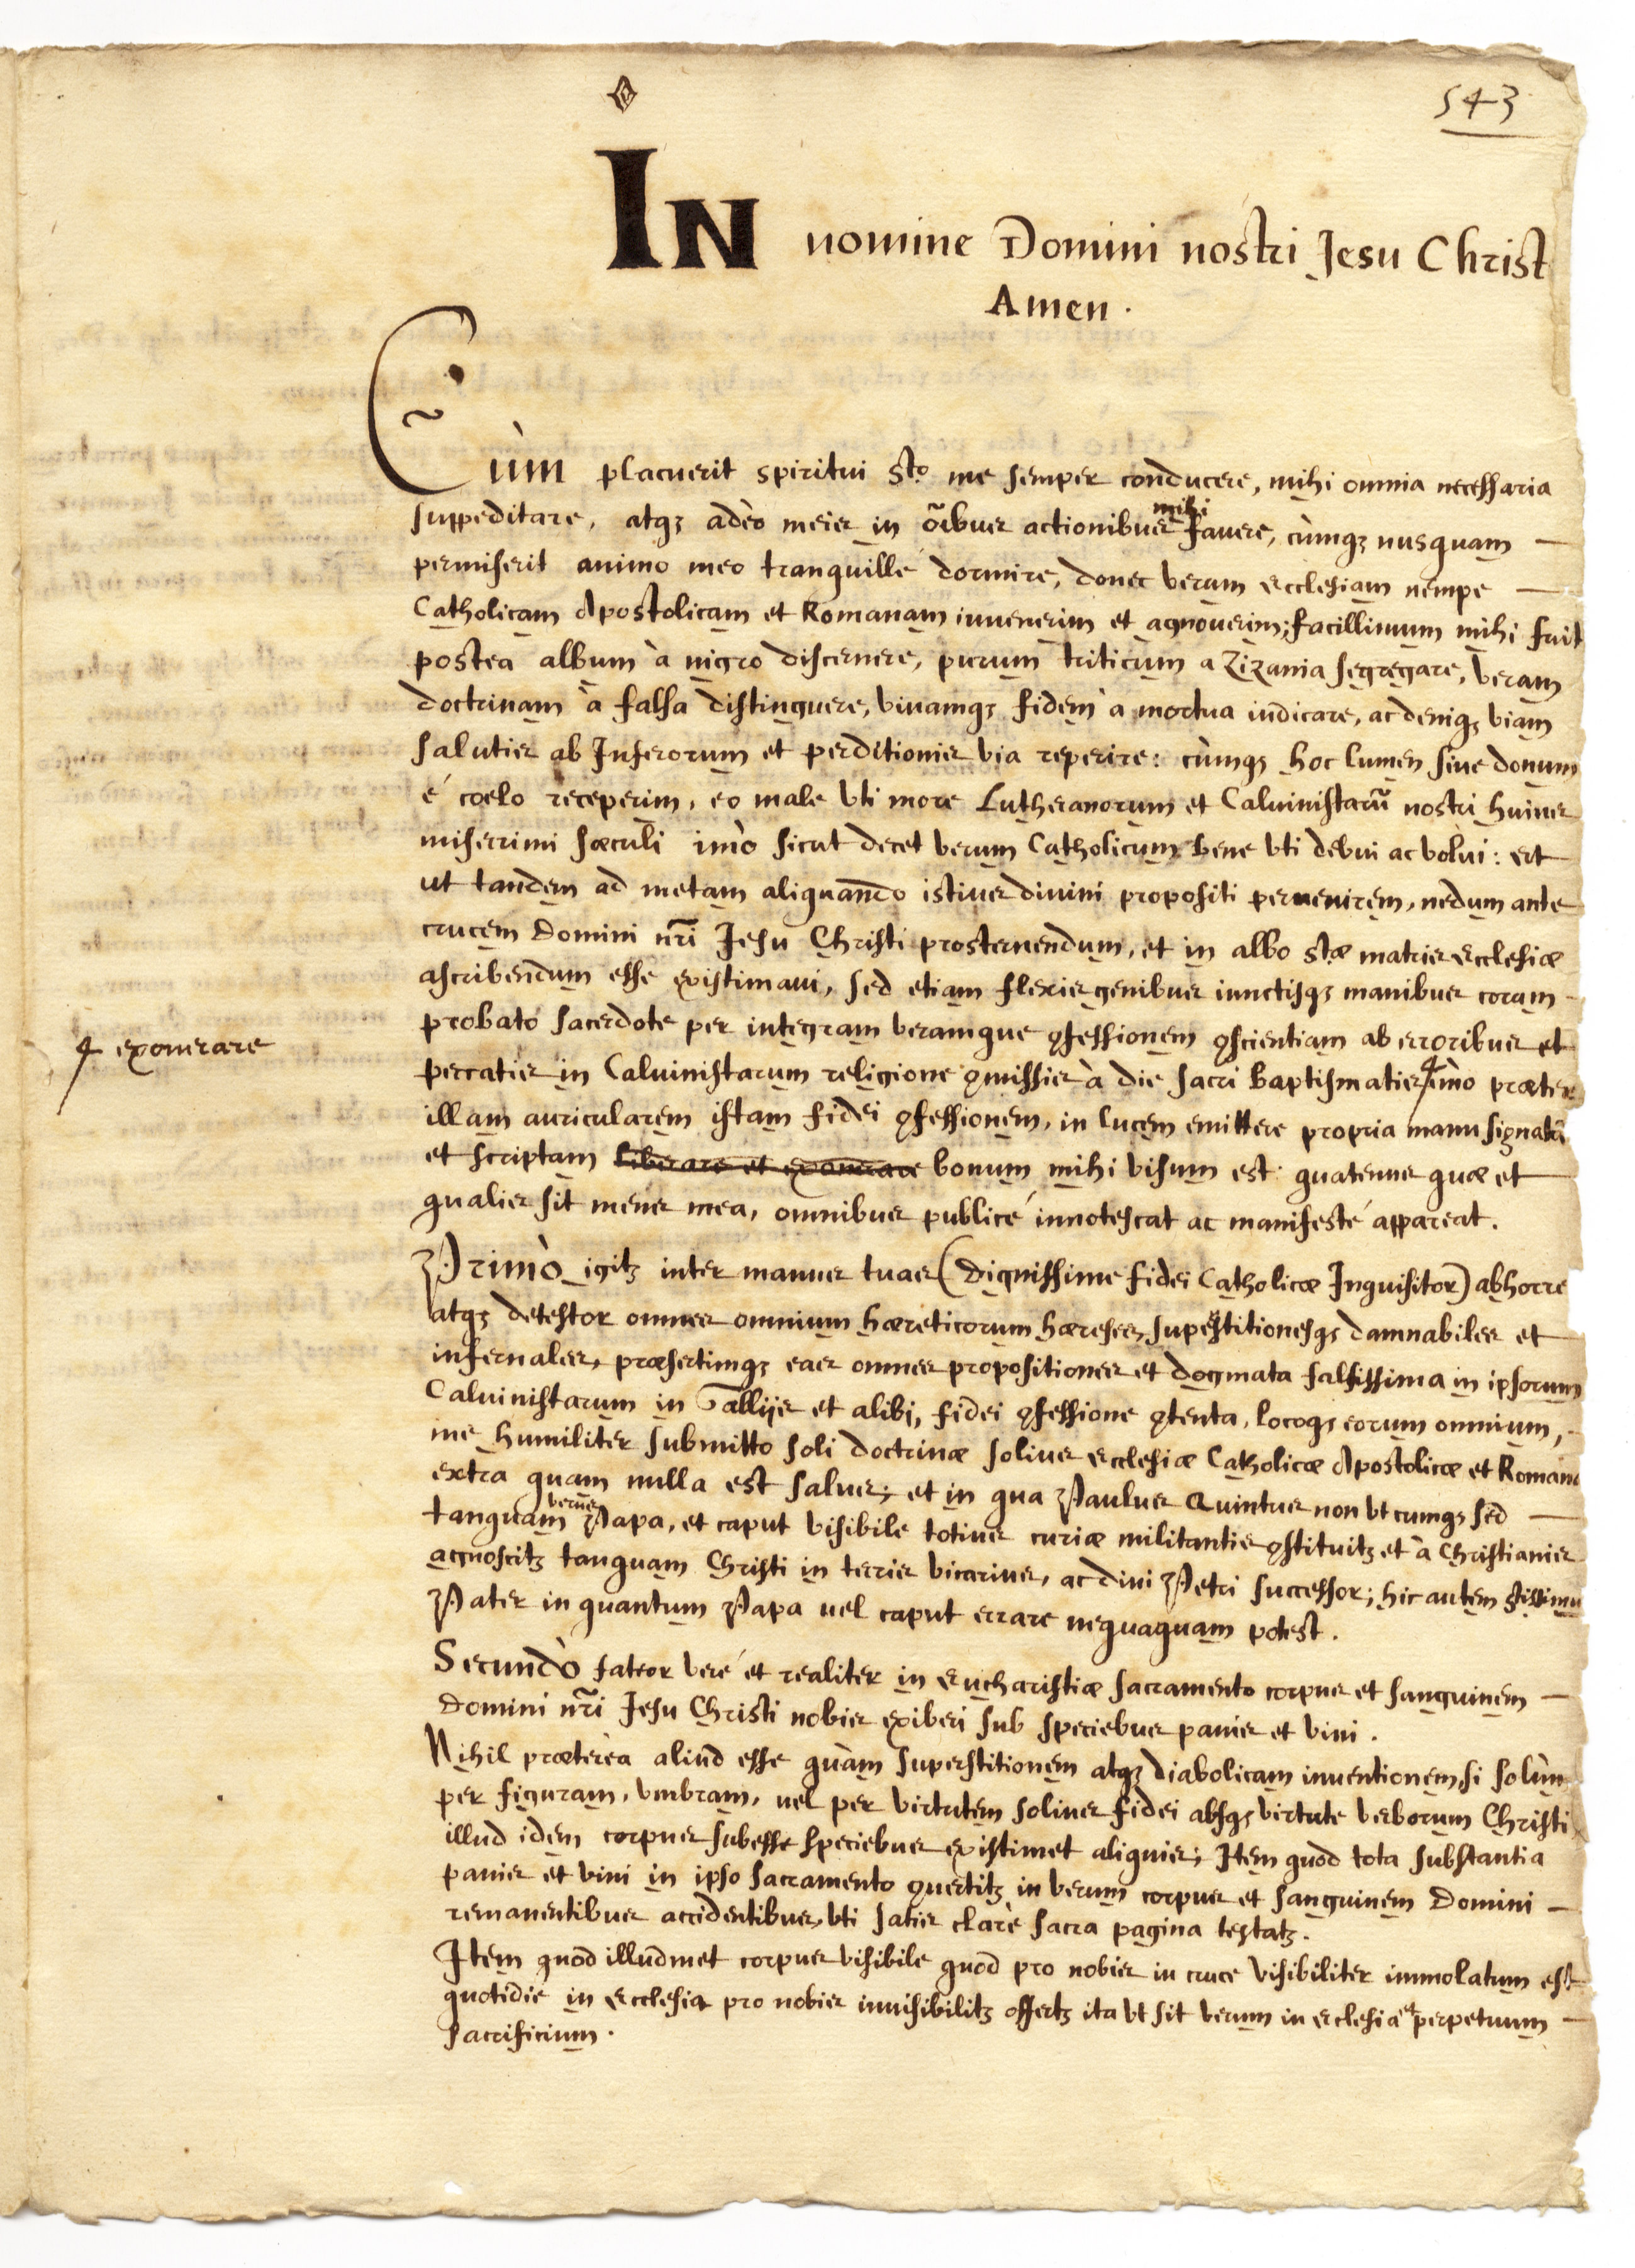 543
IN nomine Domini nostri Jesu Christ
Amen.
Cùm placuerit spiritui sto. me semper conducere, mihi omnia necessaria
suppeditare, atqꝫ adeò meis in oĩbus actionibus mihi favere, cùmqꝫ nusquam —
permiserit animo meo tranquillé dormire, donec verum ecclesiam nempe —
Catholicam Apostolicam et Romanam invenerim et agnoverim; facillimum mihi fuit
postea album à nigro discernere, purum triticum a Zizania segregare, veram
doctrinam à falsa distinguere, vivamqꝫ fidem à mortua iudicare, ac deniqꝫ viam
salutis ab Inferorum et perditionis via reperire: cùmqꝫ hoc lumen sive donum
é coelo receperim, eo male vti more Lutheranorum et Calvinistarũ nostri huius
miserrimi sæculi imò sicut decet verum Catholicum bene vti debui ac volui: et
ut tandem ad metam aliquando istius divini propositi pervenirem, nedum ante
crucem Domini nr̃i Jesu Christi prosternendum, et in albo stæ matris ecclesiæ
ascribendum esse existimavi, sed etiam flexis genibus iunctisqꝫ manibus coram
probato sacerdote per integram veramque ꝯfessionem ꝯscientiam ab erroribus et
peccatis in Calvinistarum religione ꝯmissis à die sacri Baptismatis imò præter
exonerare
illam auricularem istam fidei ꝯfessionem, in lucem emittere propria manu signatã
et scriptam liberare et exonerare bonum mihi visum est quatenus quæ et
qualis sit mens mea, omnibus publicé innotescat ac manifesté appareat.
Primò igitꝫ inter manus tuas (dignissime fidei Catholicæ Inquisitor) abhorre
atqꝫ detestor omnes omnium hæreticorum hæreses, superstitionesqꝫ damnabiles et —
infernales, præsertimqꝫ eas omnes propositiones et dogmata falsissima in ipsorum
Calvinistarum in Gallijs et alibi, fidei ꝯfessione ꝯtenta, locoqꝫ eorum omnium,
me humiliter submitto soli doctrinæ solius ecclesiæ Catholicæ Apostolicæ et Romanæ
extra quam nulla est salus; et in qua Paulus Quintus non vt cumqꝫ sed —
tanquam verus Papa, et caput visibile totius curiæ militantis ꝯstituitꝫ et à Christianis
agnoscitꝫ tanquam Christi in terris vicarius, ac divi Petri successor; hic autem stissimu
Pater in quantum Papa vel caput errare nequaquam potest.
Secundò fateor veré et realiter in eucharistiæ sacramento corpus et sanguinem —
Domini nr̃i Jesu Christi nobis exiberi sub speciebus panis et vini.
Nihil prætereà aliud esse quàm superstitionem atqꝫ diabolicam inventionem, si solùm
per figuram, vmbram, vel per virtutem solius fidei absqꝫ virtute verborum Christi
illud idem corpus subesse speciebus existimet aliquis; Item quod tota substantia
panis et vini in ipso sacramento ꝯvertitꝫ in verum corpus et sanguinem Domini —
remanentibus accidentibus, vti satis clarè sacra pagina testatꝫ.
Item quod illudmet corpus visibile quod pro nobis in cruce visibiliter immolatum est
quotidie in ecclesia pro nobis invisibilitꝫ offertꝫ ita vt sit verum in ecclesia et perpetuum —
sacrificium.